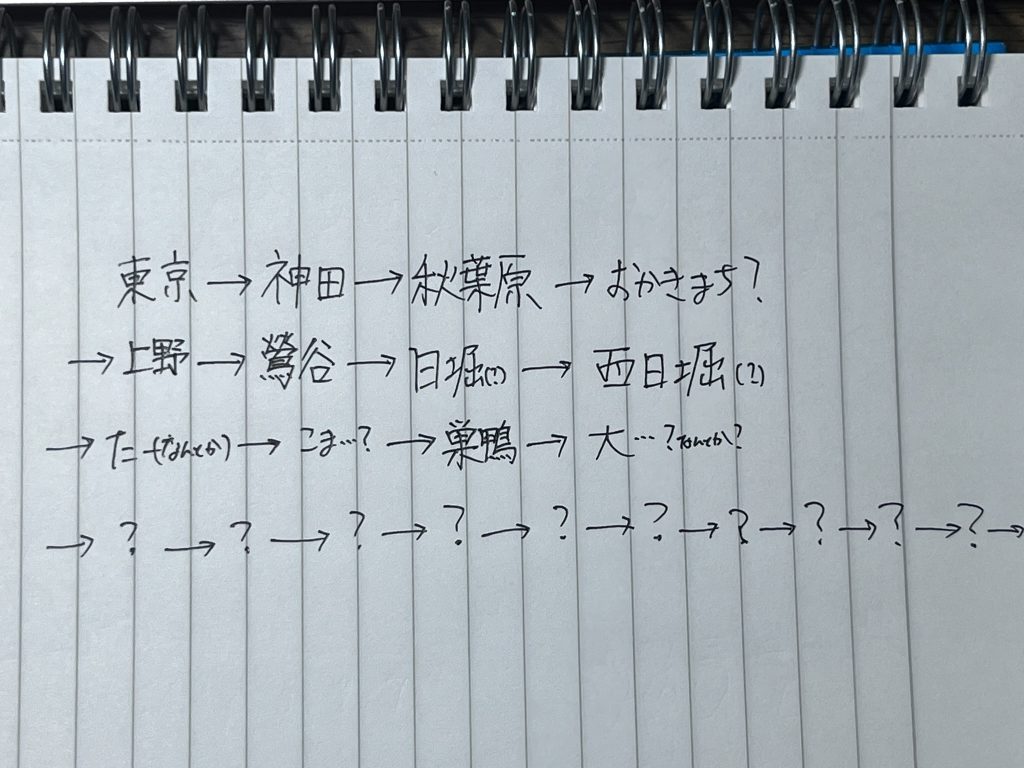 東京→神田→秋葉原→おかきまち?
→上野→鶯谷→日堀(?)→西日堀(?)
→た-(なんとか)→こま…?→巣鴨→大…?なんとか?
→?→?→?→?→?→?→?→?→?→?→